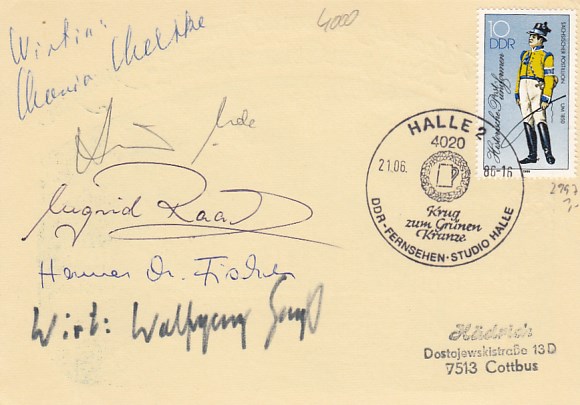 Wirtin:
4000
10
DDR
SÄCHSISCHER POSTILLION
UM 1850
Historische Postuniformen
HALLE 2
4020
21.06.
86-16
Krug
zum Grünen
Kranze
DDR-FERNSEHEN·STUDIO HALLE
Ingrid Raack
Hannes Dr. Fischer
Wirt: Wolfgang
Hädrich
Dostojewskistraße 13 D
7513 Cottbus